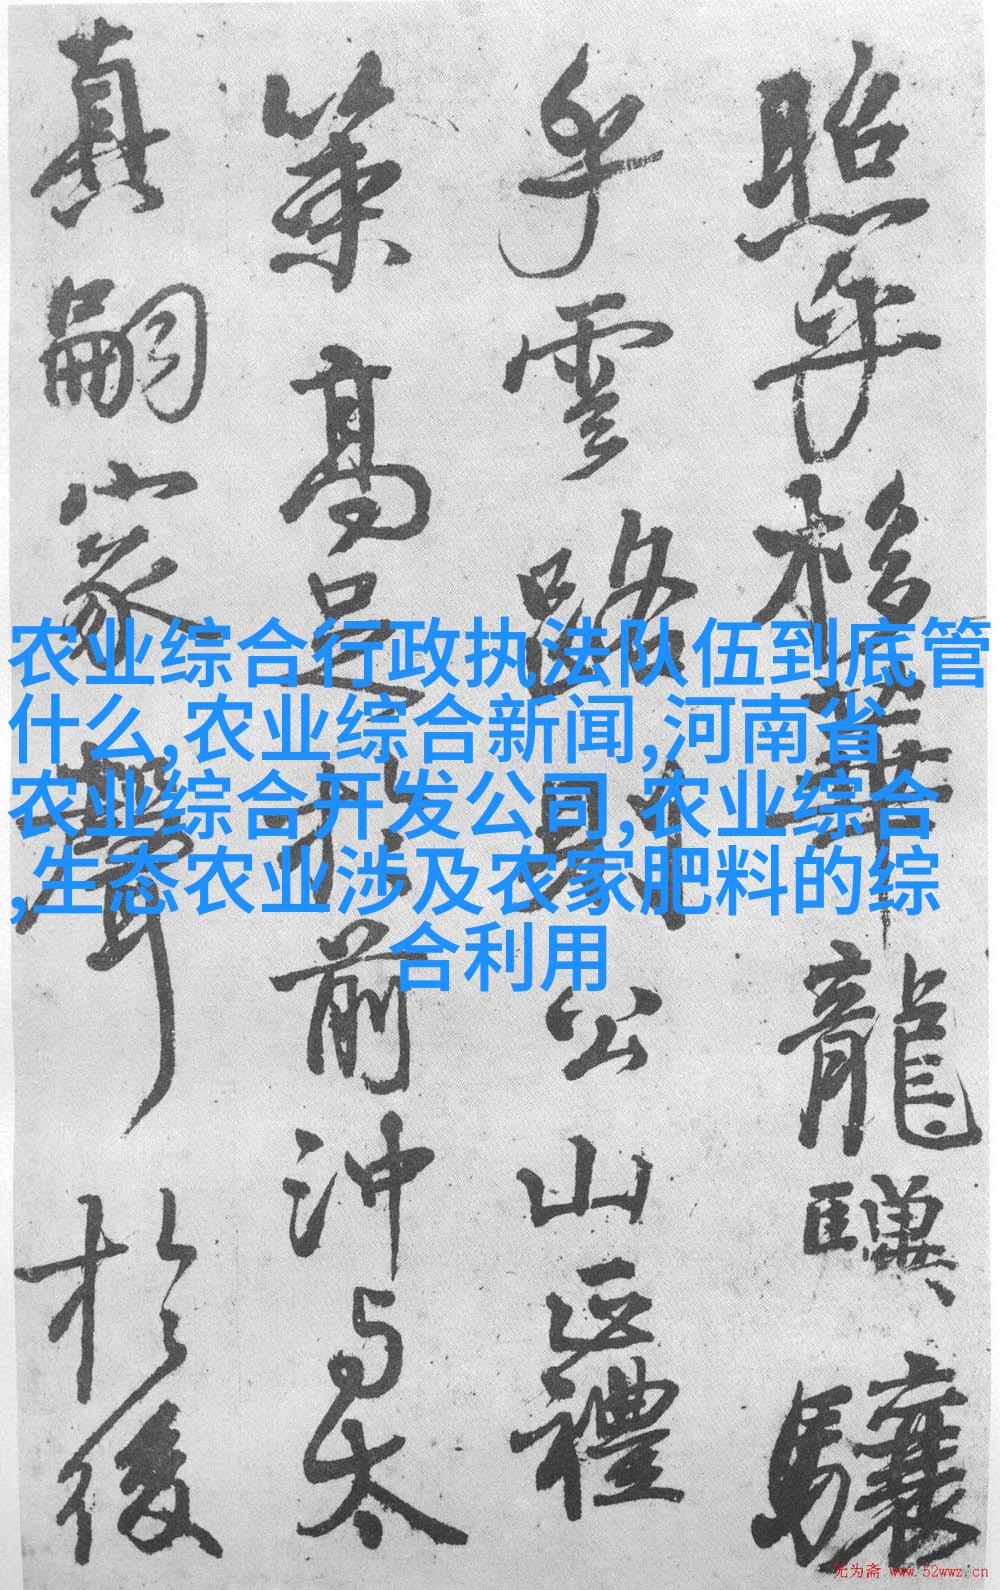 照乎栘華龍驥驤
乎雲路則公山正禮
策高足於前沖与太
真嗣家聲於後
农业综合行政执法队伍到底管
什么,农业综合新闻,河南省
农业综合开发公司,农业综合
,生态农业涉及农家肥料的综
合利用
无为斋 www.52wwz.cn